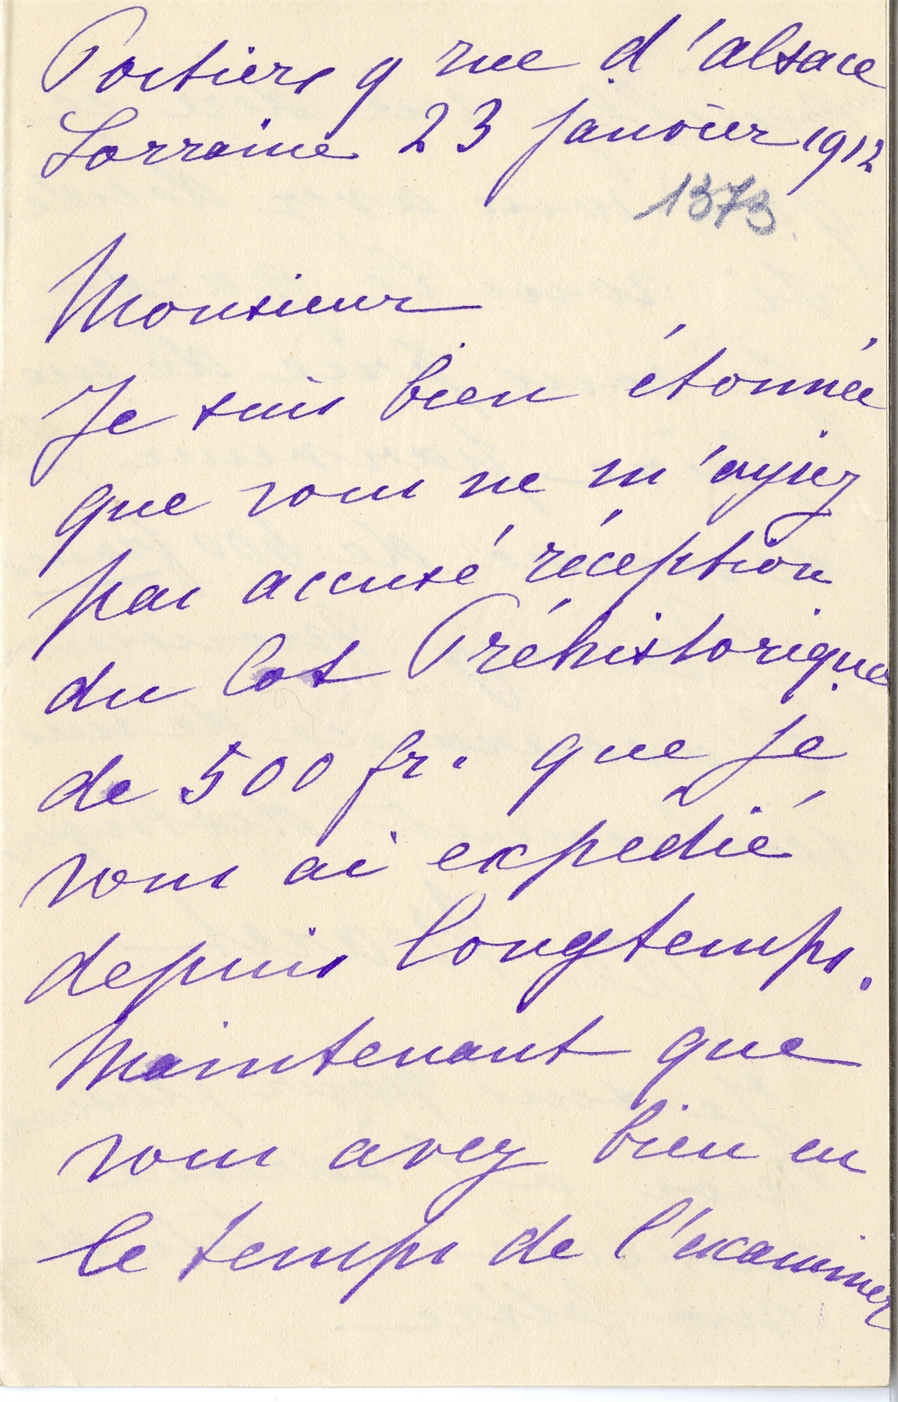 Poitiers 9 rue d'alsace
Lorraine 23 janvier 1912
1373
Monsieur
Je suis bien étonnée
que vous ne m'ayiez
pas accusé réception
du lot Préhistorique
de 500 fr. que je
vous ai expédié
depuis longtemps.
Maintenant que
vous avez bien eu
le temps de l'examiner